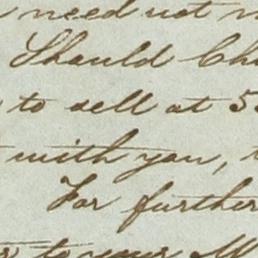 need not
Should Ch
to sell at 5
with you,
For further
to your M